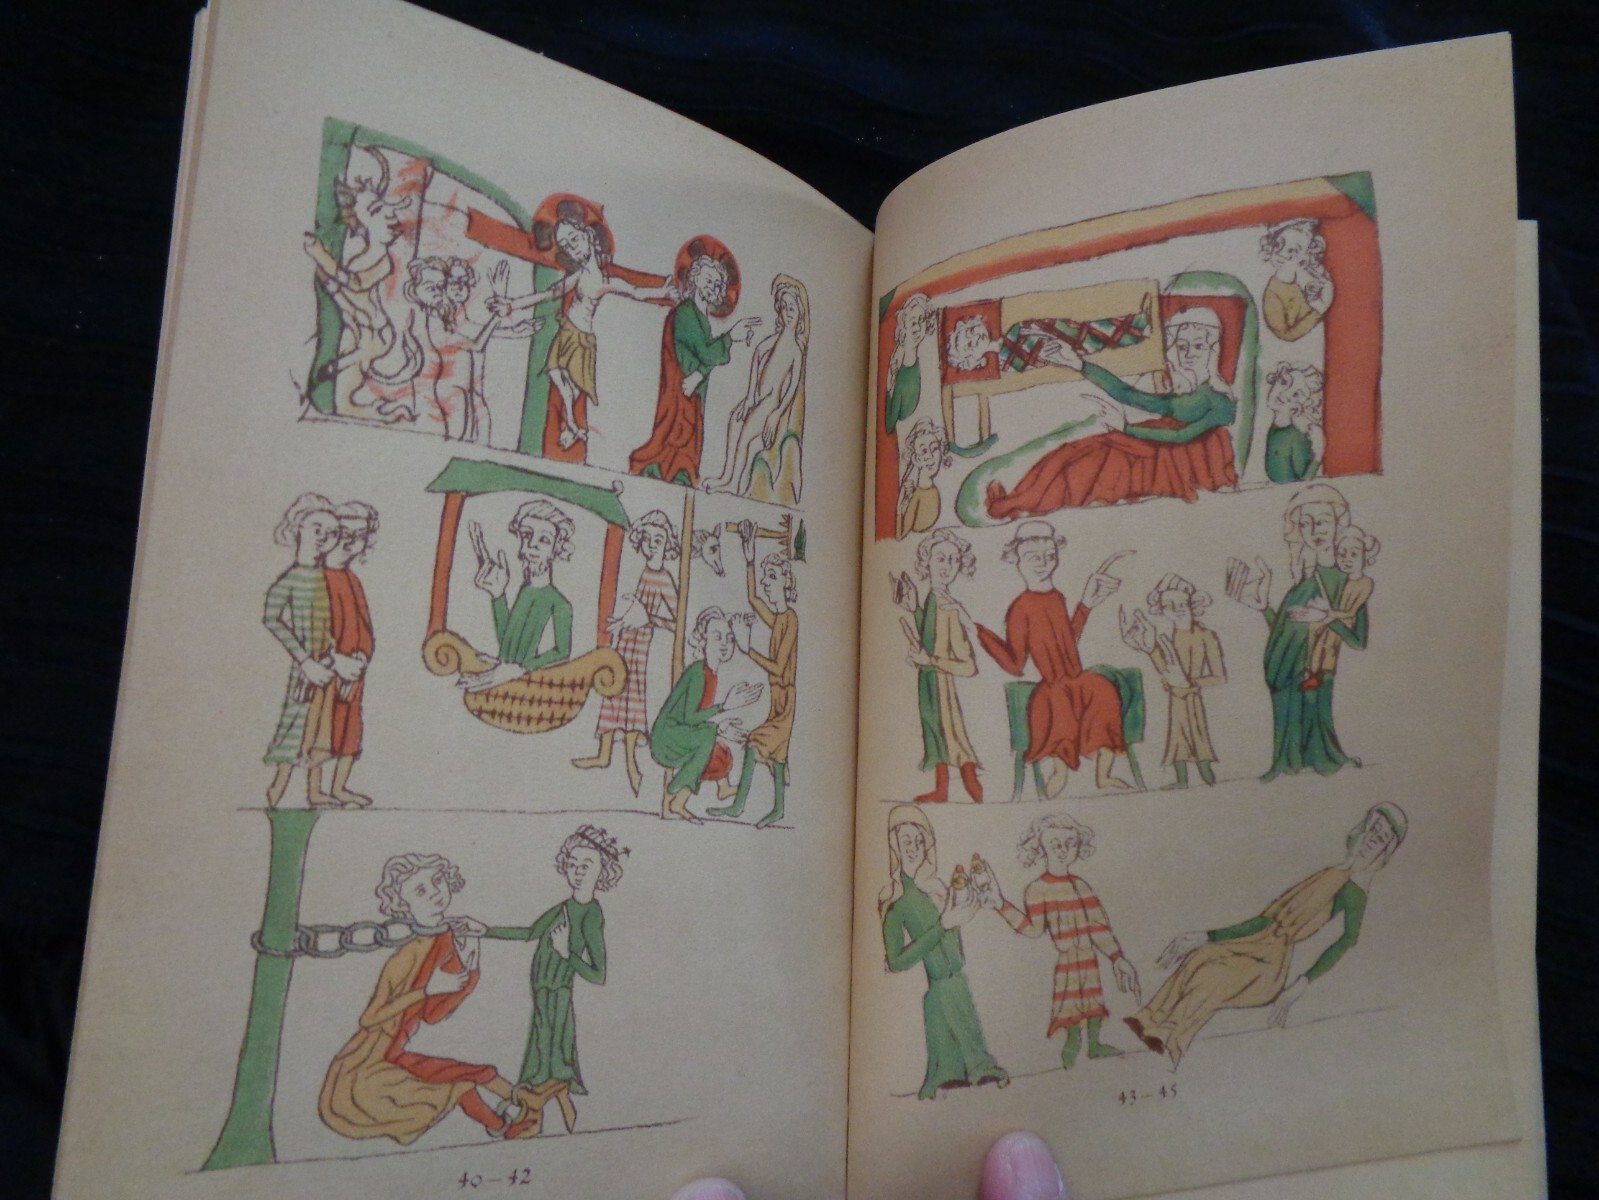 40–42
43–45